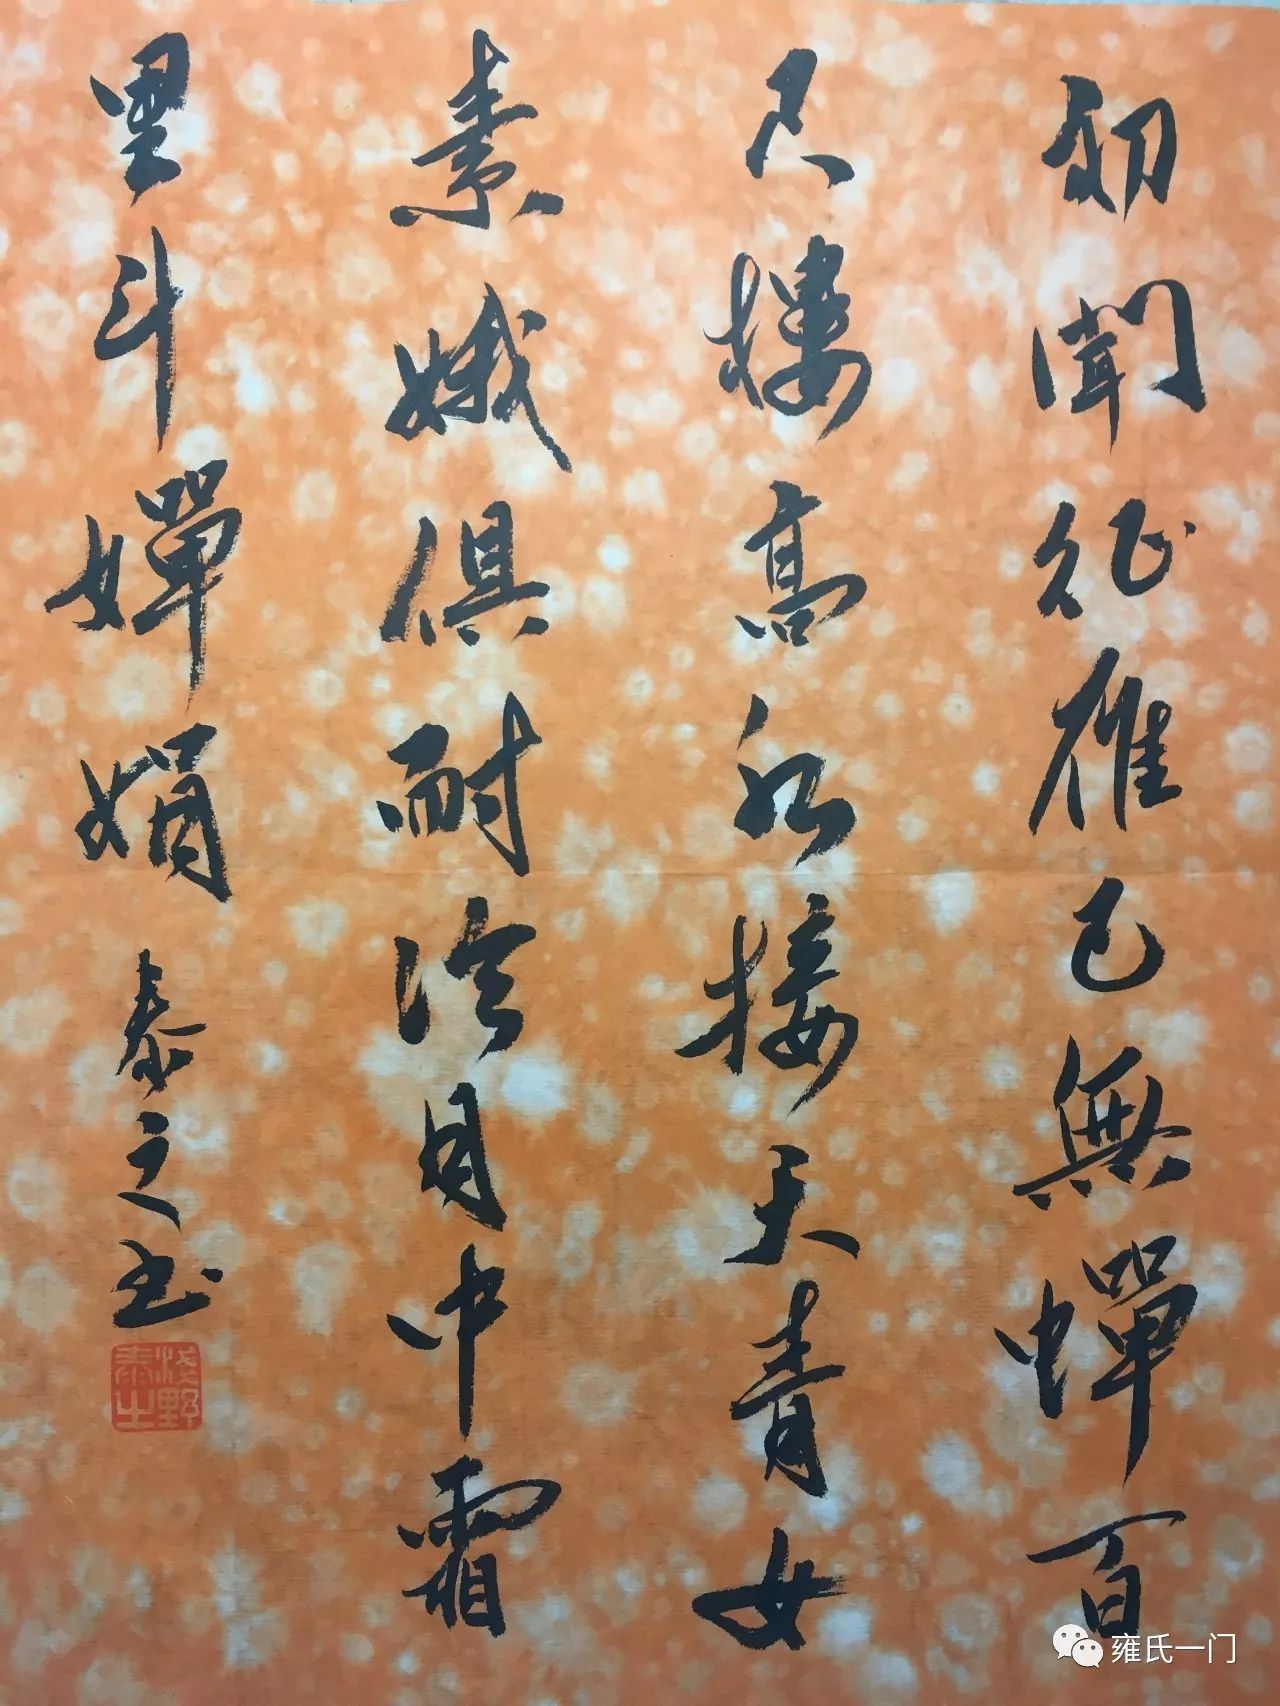 初聞征雁已無蟬百
尺樓高水接天青女
素娥俱耐冷月中霜
里斗嬋娟
泰之书
淺野
泰之
雍氏一门